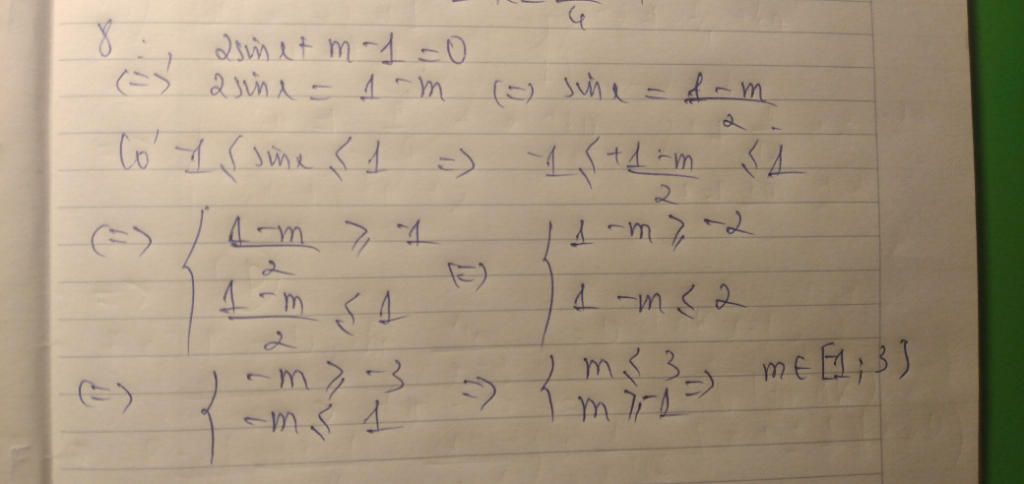 4
8 :, 2sinx + m - 1 = 0
(=) 2sinx = 1 - m (=) sinx = \frac{1-m}{2}
Có -1 ≤ sinx ≤ 1 => -1 ≤ \frac{+1-m}{2} ≤ 1
(=) { \frac{1-m}{2} ≥ -1 (=) { 1 - m ≥ -2
\frac{1-m}{2} ≤ 1 1 - m ≤ 2
(=) { -m ≥ -3 => { m ≤ 3 => m ∈ [-1; 3]
-m ≤ 1 m ≥ -1